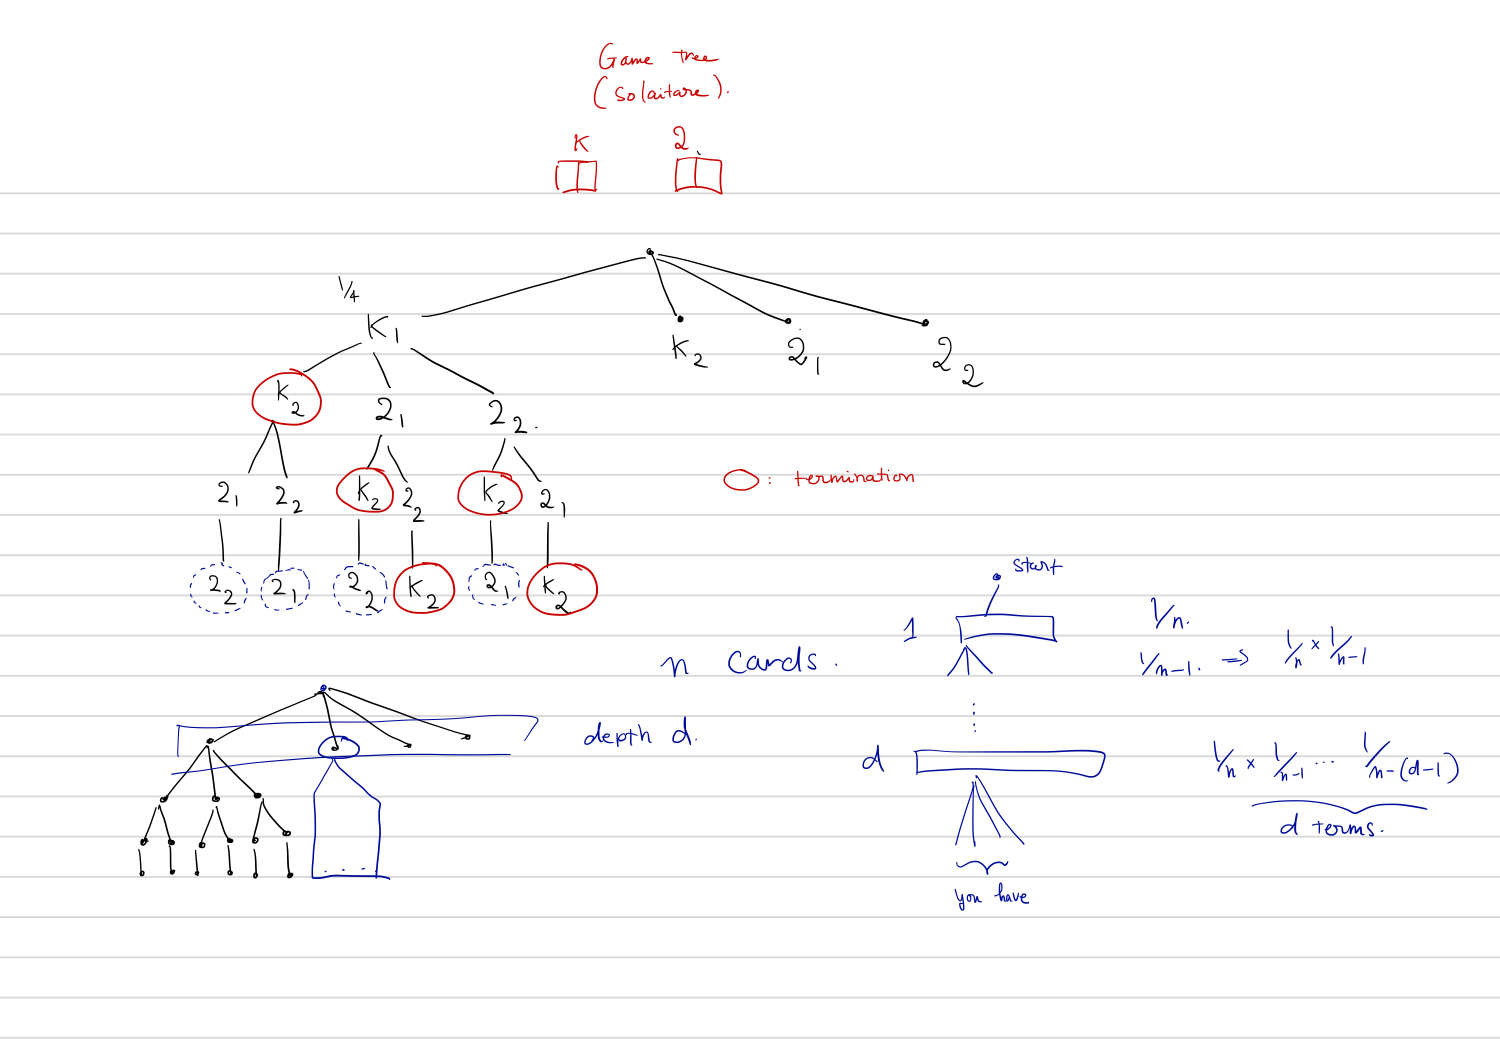 Game tree
(Solaitare).
K 2.
1/4
K₁ K₂ 2₁ 2₂
K₂ 2₁ 2₂.
2₁ 2₂ K₂ 2₂ K₂ 2₁
2₂ 2₁ 2₂ K₂ 2₁ K₂
: termination
start
1 1/n.
n cards. 1/n-1. => 1/n × 1/n-1
depth d.
d 1/n × 1/n-1 ... 1/n-(d-1)
d terms.
you have